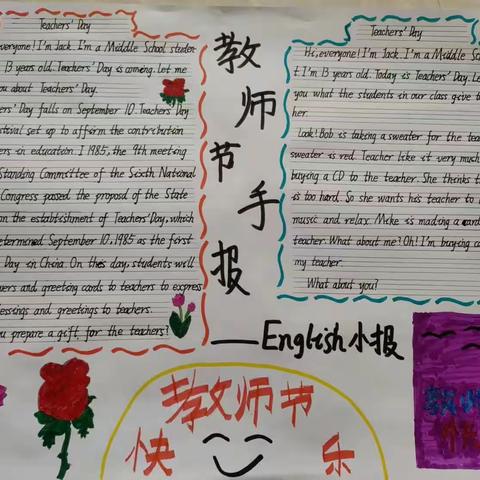 Teachers' Day
everyone! I'm Jack. I'm a Middle School studen
13 years old. Teachers' Day is coming. Let me
you about Teachers' Day.
ers' Day falls on September 10. Teachers' Day
stival set up to affirm the contribution
ers in education. I 1985, the 9th meeting
Standing Committee of the Sixth National
Congress passed the proposal of the State
on the establishment of Teachers' Day, which
etermined September 10, 1985 as the first
Day in China. On this day, students will
wers and greeting cards to teachers to express
lessings and greetings to teachers.
ou prepare a gift for the teachers?
教师节手报
Teachers' Day
Hi, everyone! I'm Jack. I'm a Middle Sc
t I'm 13 years old. Today is Teachers' Day. Le
you what the students in our class give t
her.
Look! Bob is taking a sweater for the tea
sweater is red. Teacher like it very much
buying a CD to the teacher. She thinks t
is too hard. So she wants his teacher to l
music and relax. Mike is mading a card
teacher. What about me? Oh! I'm buying a
my teacher.
What about you?
——English小报
教师节
快乐
教师